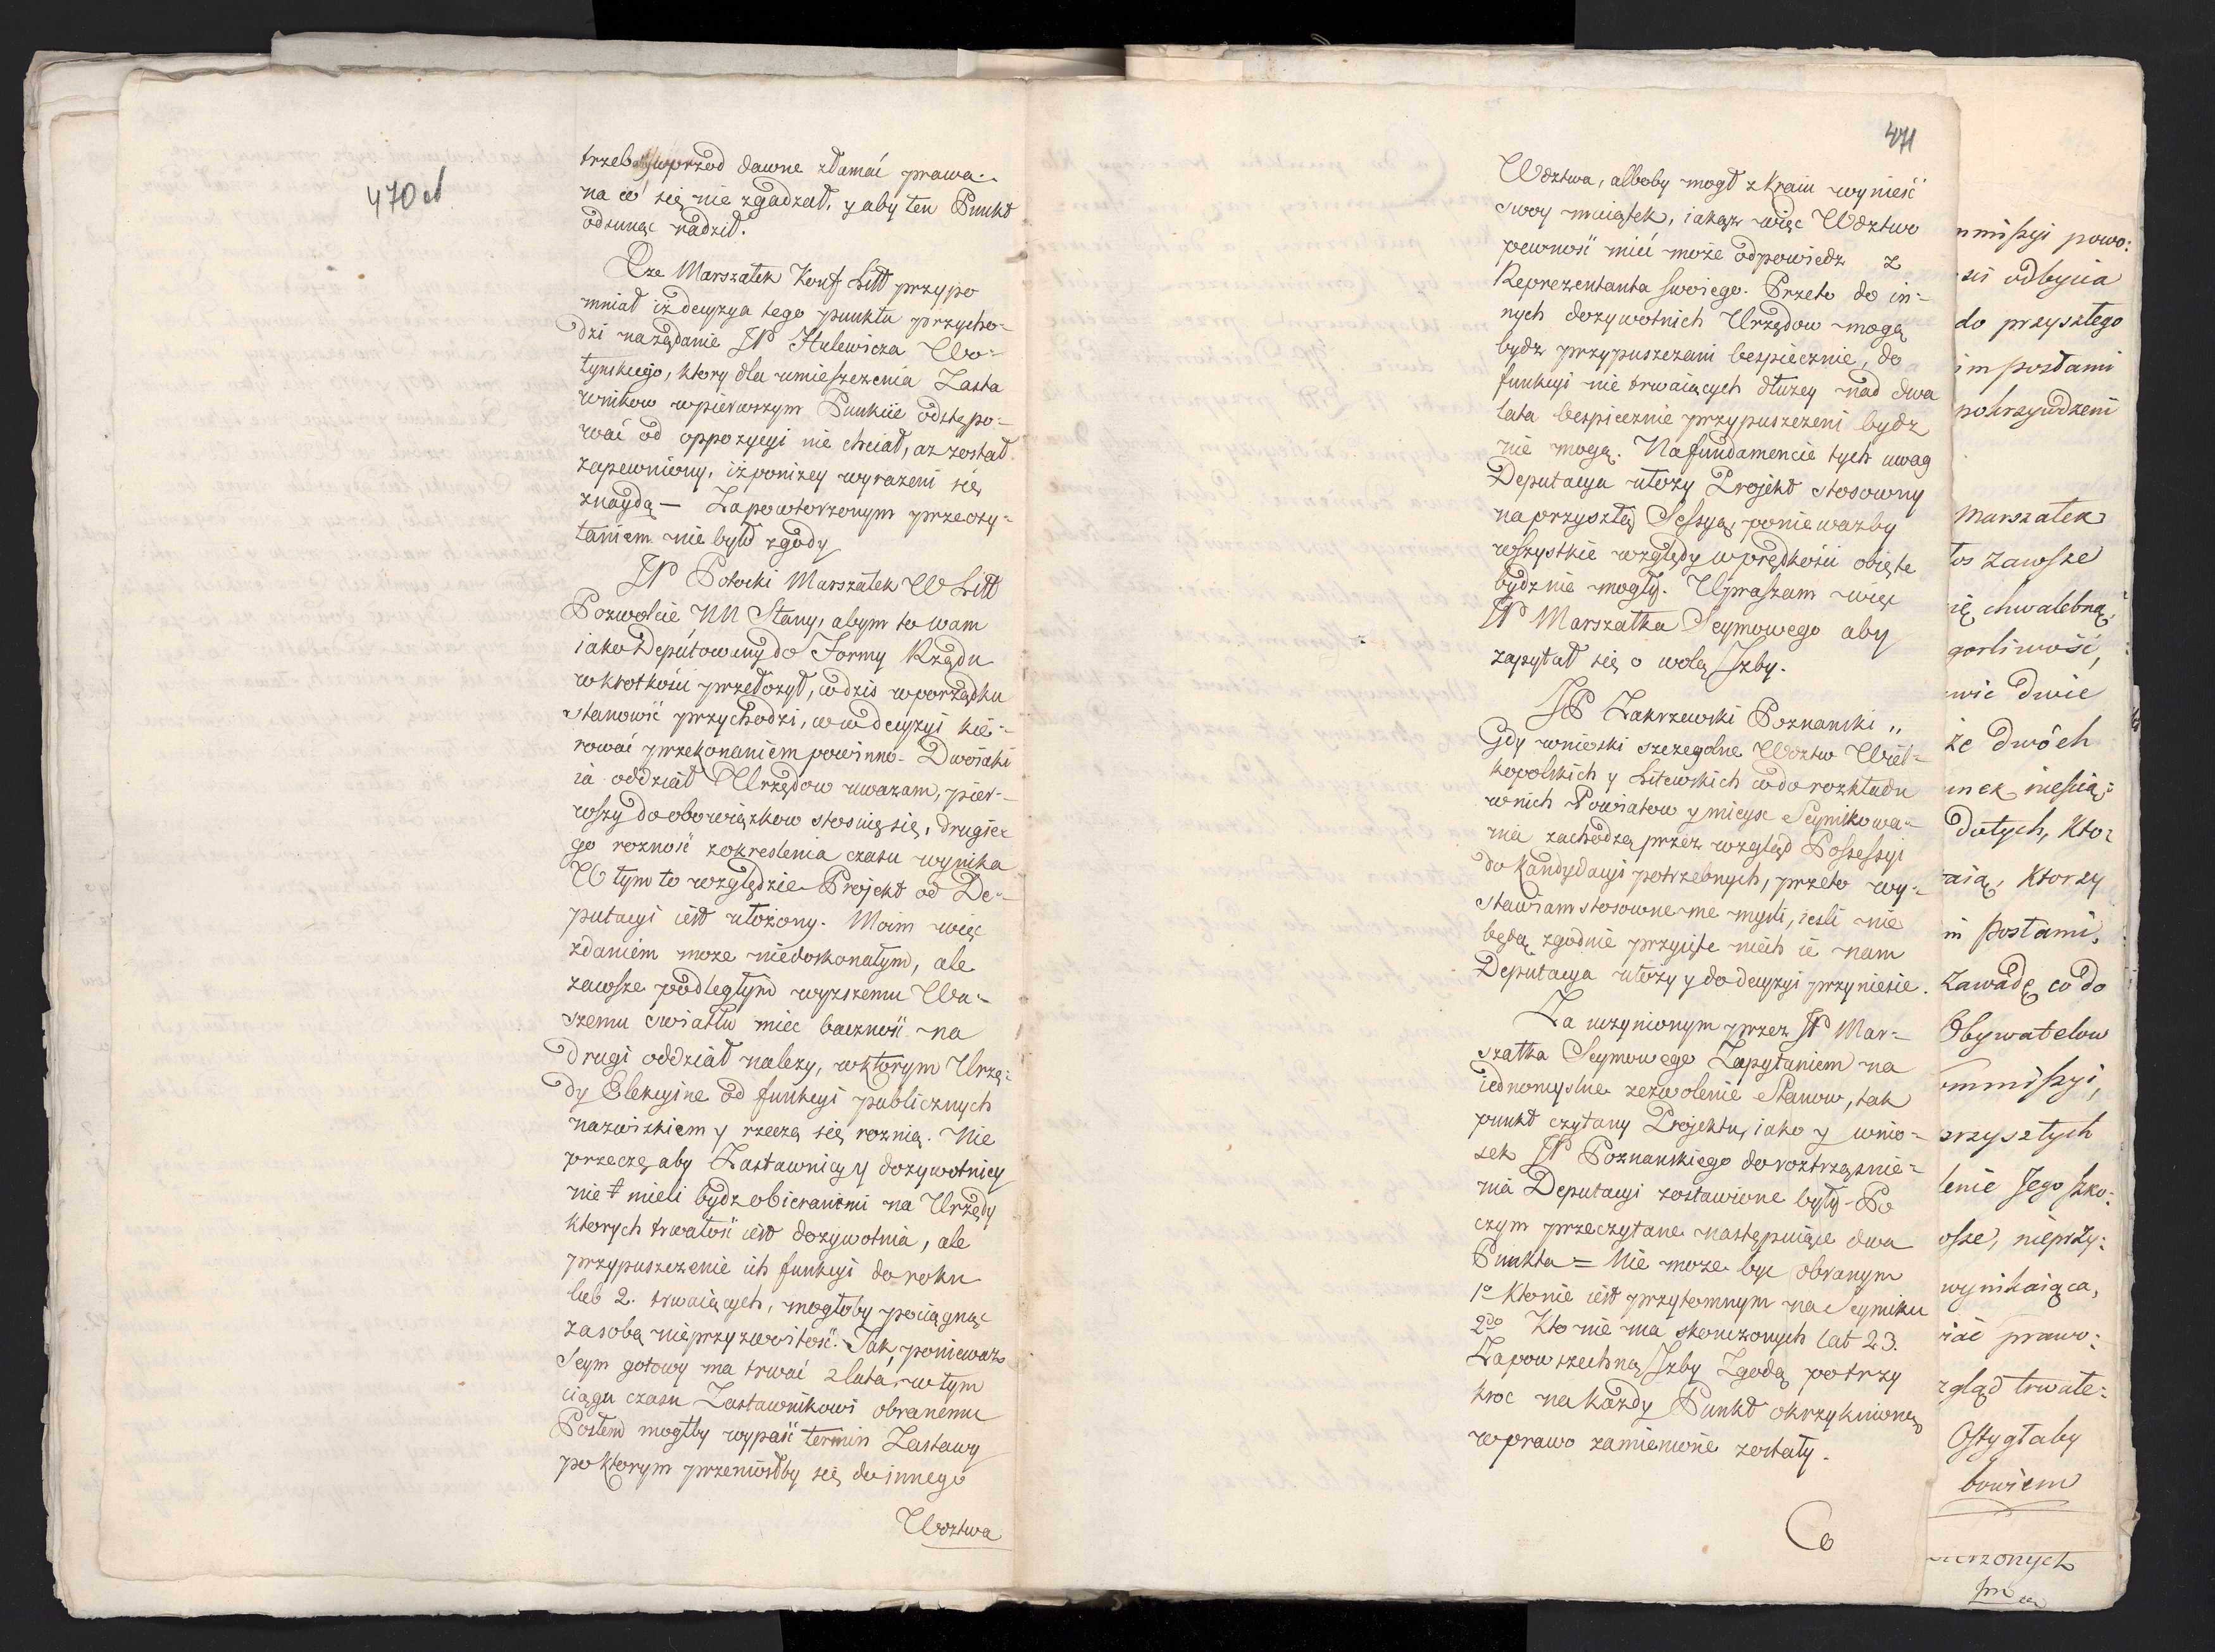 470 d
trzeba wprzod dawne złamać prawa
na co się nie zgadzał, y aby ten Punkt
odsunąc radził.
Xże Marszałek Konf Litt przypo
mniał iż decyzya tego punktu przycho-
dzi na żądanie JP Hulewicza Wo-
łynskiego, ktory dla umieszczenia Zasta
wnikow w pierwszym Punkcie odstępo-
wać od oppozycyi nie chciał, az został
zapewniony, iż poniżey wyrazeni się
znaydą — Za powtorzonym przeczy-
taniem nie było zgody
JP Potocki Marszałek W Litt
Pozwolcie NN Stany, abym to wam
iako Deputowany do Formy Rządu
w krotkości przełożył, co dzis w porządku
stanowić przychodzi, co w decyzyi kie-
rować przekonaniem powinno. Dwoiaki
ia oddział Urzędow uwazam, pier-
wszy do obowiązkow stosuię się, drugie
go rożność z okreslenia czasu wynika
W tym to względzie Projekt od De-
putacyi iest ułożony. Moim więc
zdaniem moze niedoskonałym, ale
zawsze podległym wyzszemu Wa-
szemu swiatłu miec baczność na
drugi oddział nalezy, w ktorym Urzę-
dy Elekcyine od funkcyi publicznych
nazwiskiem y rzeczą się roznią. Nie
przeczę aby Zastawnicy y dozywotnicy
nie mieli bydz obieranemi na Urzędy
ktorych trwałość iest dozywotnia, ale
przypuszczenie ich funkcyi do roku
lub 2. trwaiących, mogłoby pociągnąc
za sobą nieprzyzwoitość. Jak ponieważ
Seym gotowy ma trwać 2 lata, w tym
ciągu czasu Zastawnikowi obranemu
Posłem mogłby wypaść termin Zastawy
po ktorym przeniosłby się do innego
Wdztwa
471
Wdztwa, alboby mogł z kraiu wynieść
swoy maiątek, iakąz więc Wdztwo
pewność mieć może odpowiedz z
Reprezentanta swoiego. Przeto do in-
nych dozywotnich Urzędow mogą
bydz przypuszczani bespiecznie, do
funkcyi nie trwaiących dłużey nad dwa
lata bespiecznie przypuszczeni bydz
nie mogą. Na fundamencie tych uwag
Deputacya ułozy Projekt stosowny
na przyszłą Sessyą, poniewazby
wszystkie względy w prędkości obięte
bydz nie mogły. Upraszam więc
JP Marszałka Seymowego aby
zapytał się o wolą Jzby.
JP Zakrzewski Poznanski „
Gdy wnioski szczegolne Wdztw Wiel-
kopolskich y Litewskich co do rozkładu
w nich Powiatow y mieysc Seymikowa-
nia zachodzą przez wzgląd Possessyi
do Kandydacyi potrzebnych, przeto wy-
stawiam stosowne me mysli, iesli nie
będą zgodnie przyięte niech ie nam
Deputacya ułozy y do decyzyi przyniesie.
Za uczynionym przez JP Mar-
szałka Seymowego Zapytaniem na
iednomyslne zezwolenie Stanow, tak
punkt czytany Projektu, iako y wnio-
sek JP Poznanskiego do roztrząsnie-
nia Deputacyi zostawione były. Po
czym przeczytane następuiące dwa
Punkta = Nie moze byc obranym
1o Kto nie iest przytomnym na Seymiku
2do Kto nie ma skonczonych lat 23.
Za powszechną Jzby Zgodą po trzy
kroc na każdy Punkt okrzyknioną
w prawo zamienione zostały.
Co
mmissyi powo:
do przyszłego
im posłami
pokrzywdzeni
Marszałek
zawsze
ię chwalebną,
gorliwość,
wie dwie
że dwóch
unek niesią:
Dotych, Kto:
aią, Ktorzy
m Posłami.
Zawadę co do
Obywatelow
ommissyi,
przyszłych
lenie Jego szko:
osze, nieprzy:
wynikaiąca,
iać prawo:
zgląd trwałe:
Ostygłaby
bowiem